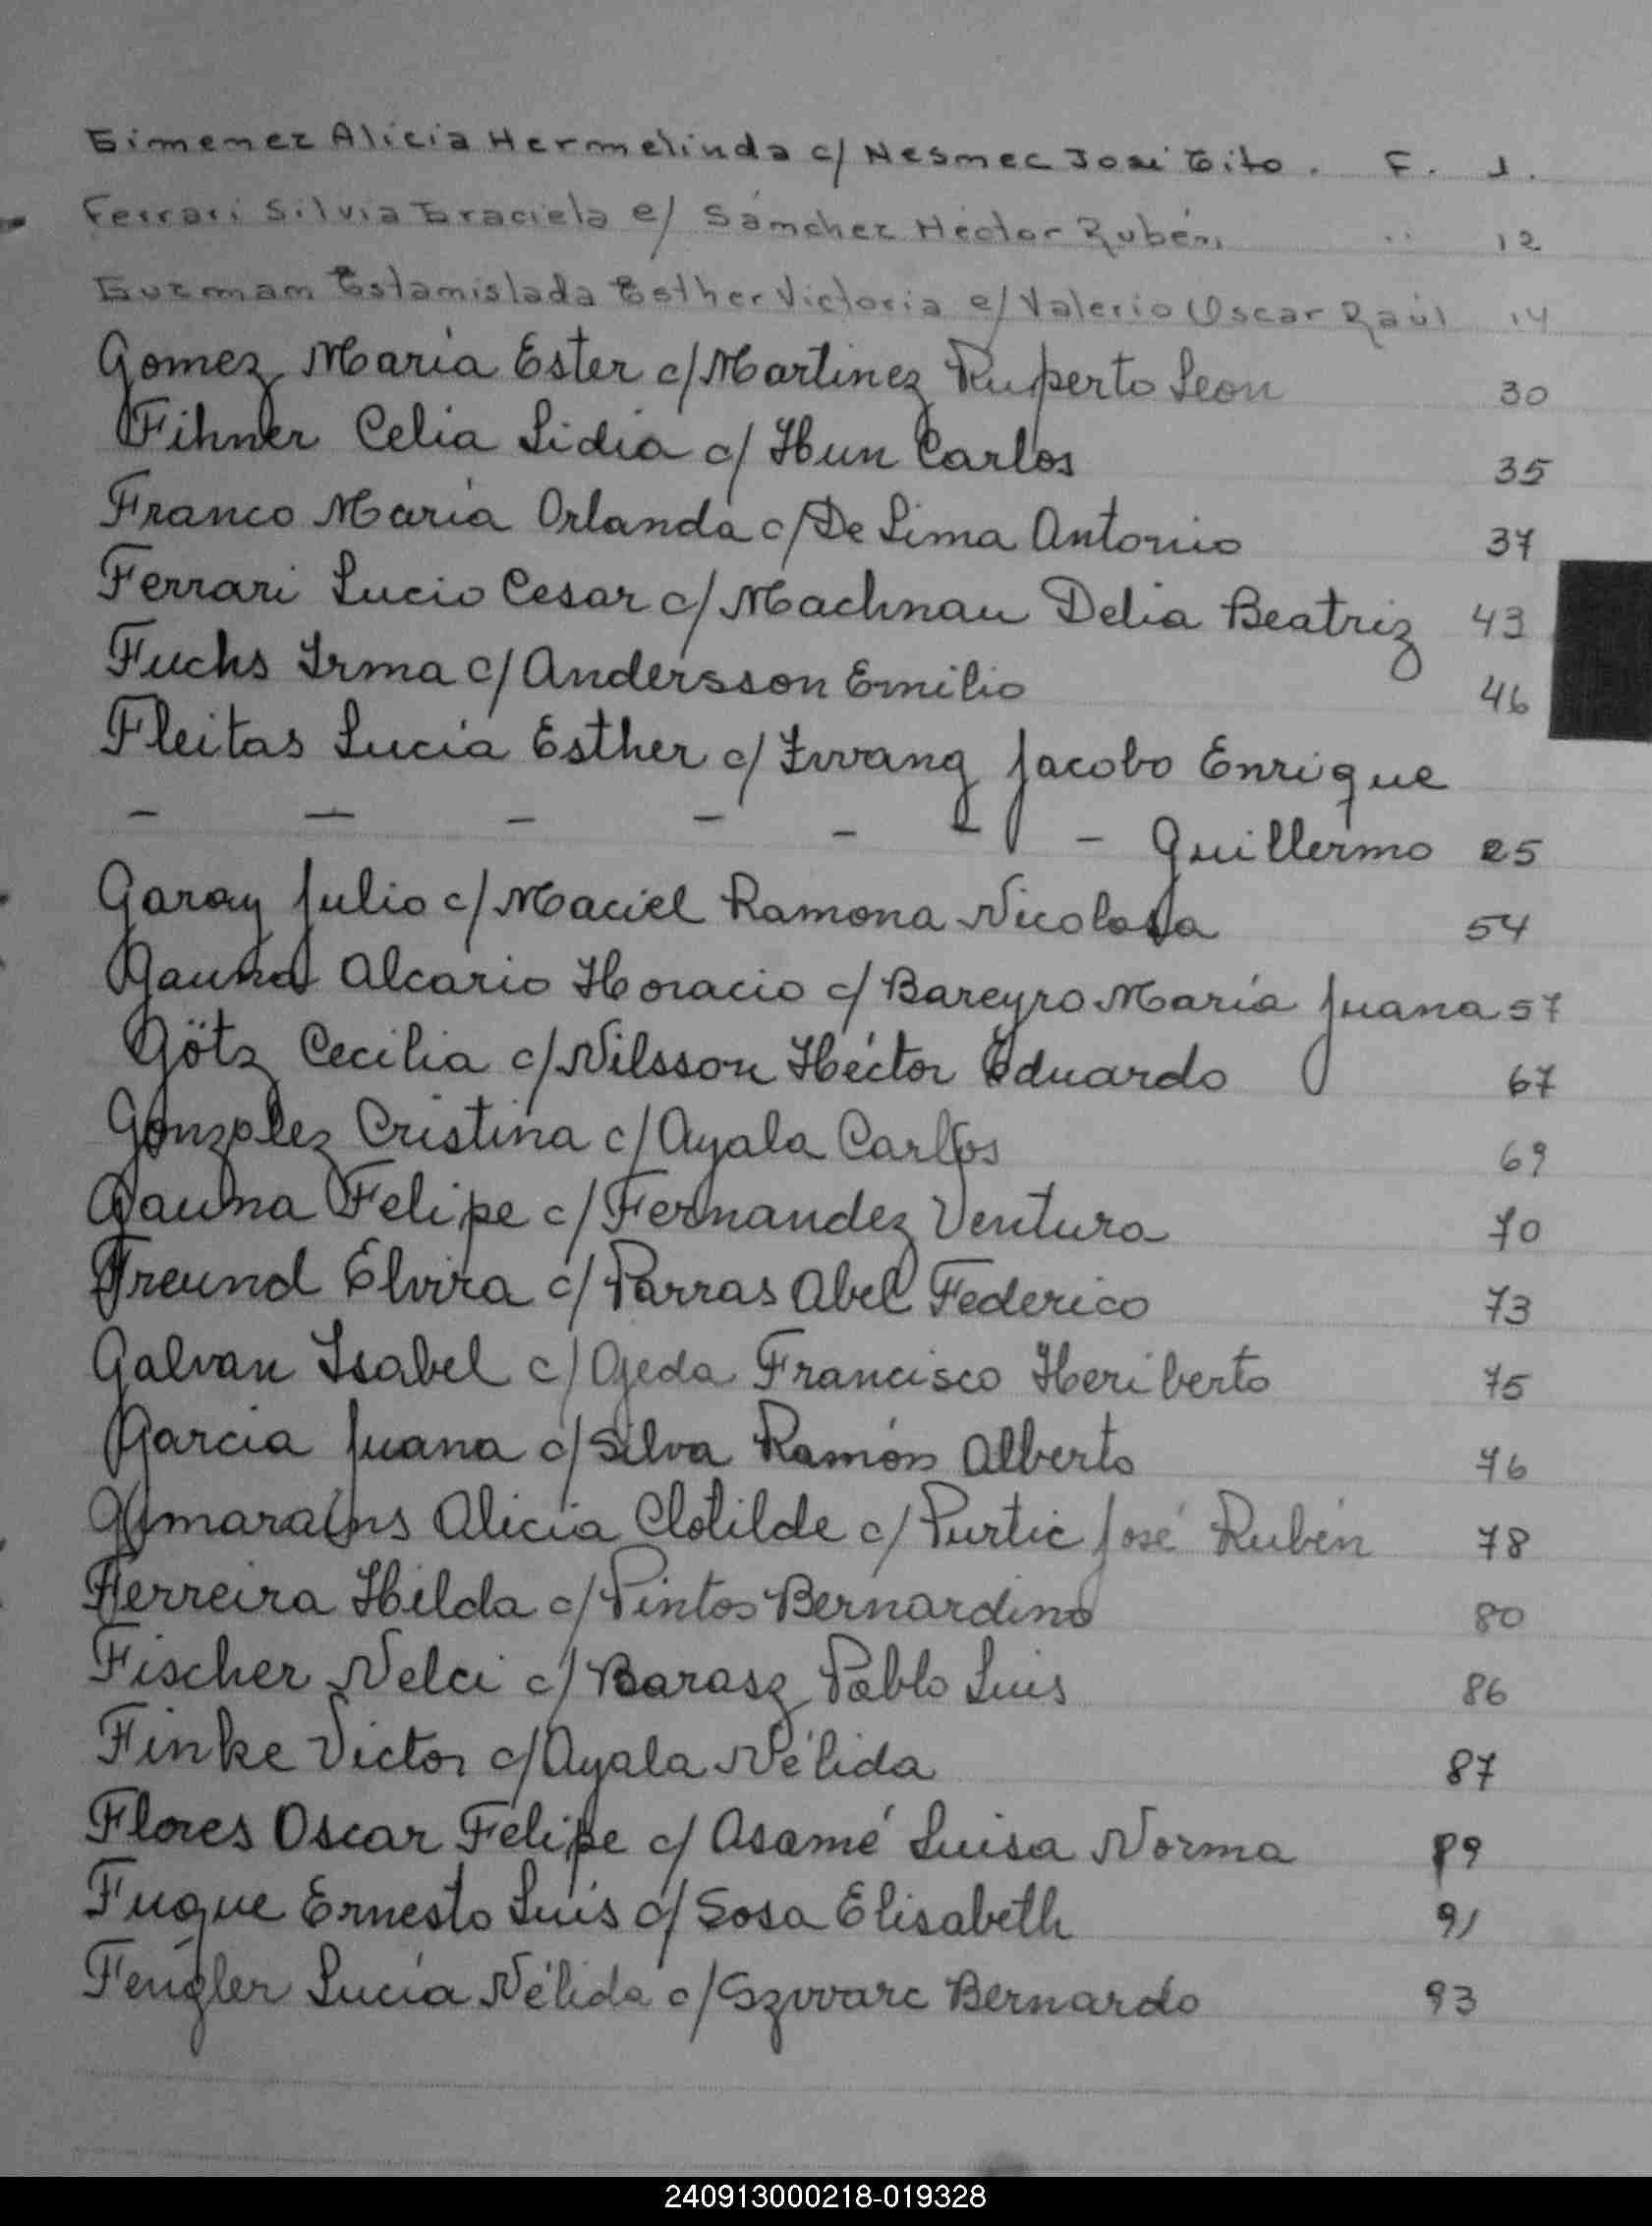 Gimenez Alicia Hermelinda c/ Nesmec José Tito. F. 1.
Ferrari Silvia Graciela c/ Sánchez Héctor Rubén, " 12
Guzman Estanislada Esther Victoria c/ Valerio Oscar Raúl 14
Gomez María Ester c/ Martinez Ruperto Leon 30
Fihner Celia Lidia c/ Hun Carlos 35
Franco María Orlanda c/ De Lima Antonio 37
Ferrari Lucio Cesar c/ Machnau Delia Beatriz 43
Fuchs Irma c/ Andersson Emilio 46
Fleitas Lucía Esther c/ Zwang Jacobo Enrique
- - - - - - - Guillermo 25
Garay Julio c/ Maciel Ramona Nicolasa 54
Gauna Alcario Horacio c/ Bareyro María Juana 57
Götz Cecilia c/ Nilsson Héctor Eduardo 67
Gonzalez Cristina c/ Ayala Carlos 69
Gauna Felipe c/ Fernandez Ventura 70
Freund Elvira c/ Parras Abel Federico 73
Galvan Isabel c/ Ojeda Francisco Heriberto 75
Garcia Juana c/ Silva Ramón Alberto 76
Gimarains Alicia Clotilde c/ Purtic José Rubén 78
Ferreira Hilda c/ Pintos Bernardino 80
Fischer Nelci c/ Barasz Pablo Luis 86
Finke Victor c/ Ayala Nélida 87
Flores Oscar Felipe c/ Asamé Luisa Norma 89
Fuque Ernesto Luis c/ Sosa Elisabeth 91
Fengler Lucía Nélida c/ Szwarc Bernardo 93
240913000218-019328